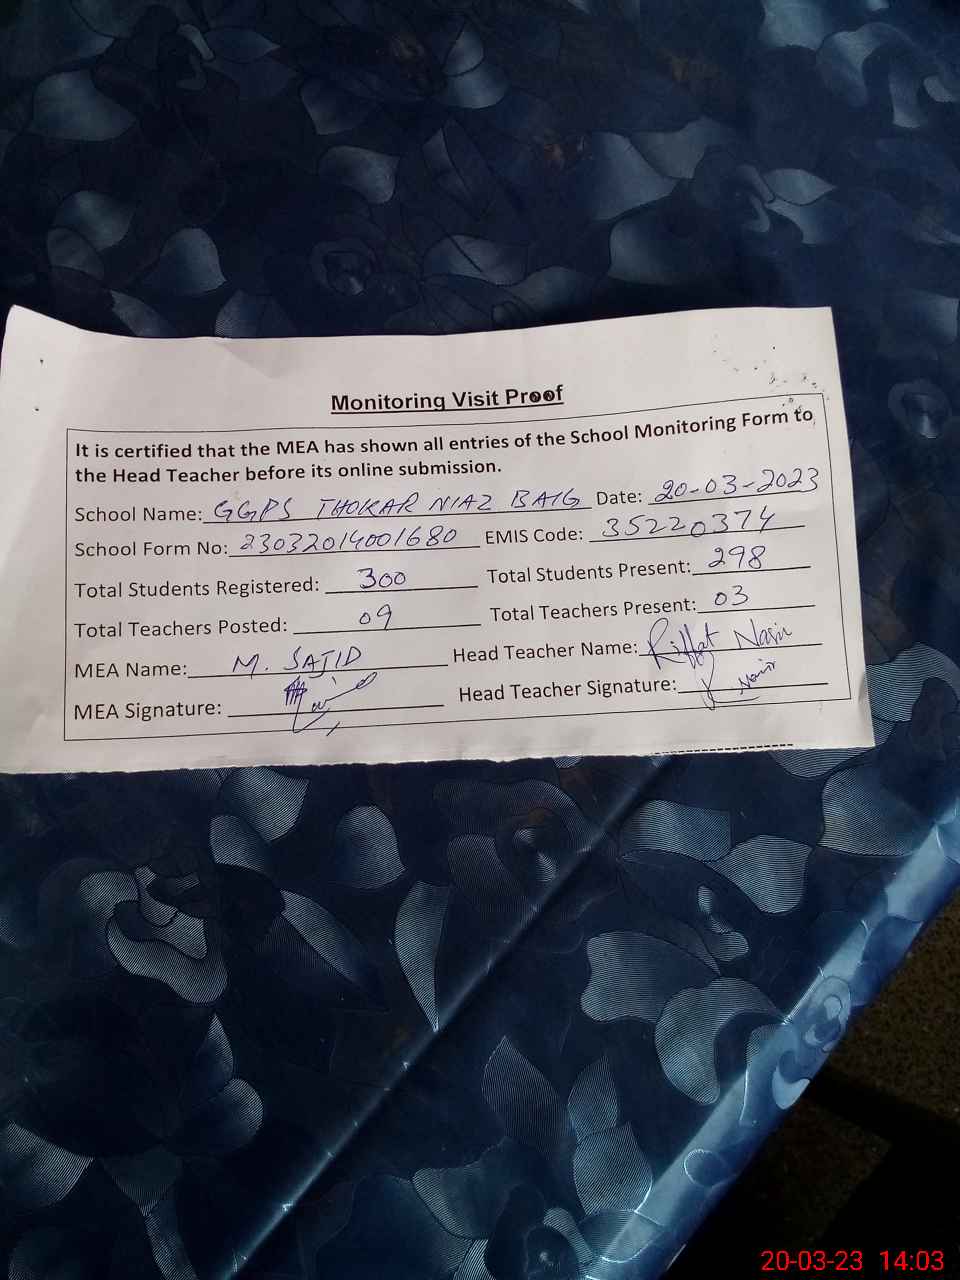 Monitoring Visit Proof
It is certified that the MEA has shown all entries of the School Monitoring Form to
the Head Teacher before its online submission.
School Name: GGPS THOKAR NIAZ BAIG Date: 20-03-2023
School Form No: 23032014001680 EMIS Code: 35220374
Total Students Registered: 300 Total Students Present: 298
Total Teachers Posted: 09 Total Teachers Present: 03
MEA Name: M. SAJID Head Teacher Name: Riffat Nasir
MEA Signature: Head Teacher Signature: Nasir
20-03-23 14:03